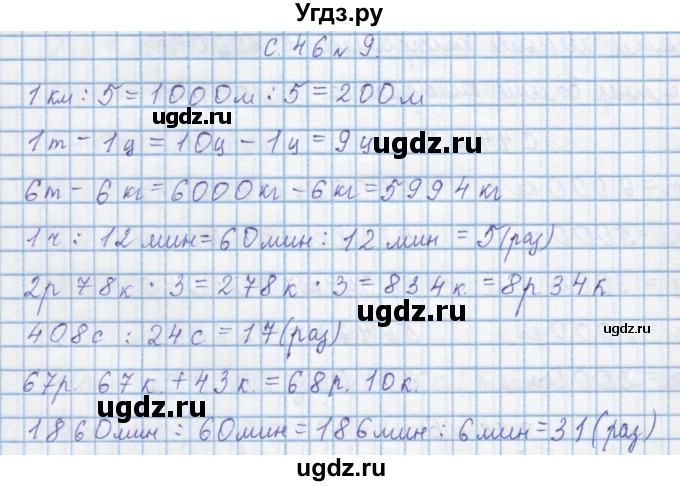 Угдз.ру
С. 46 № 9.
1 км : 5 = 1000м : 5 = 200м
ugdz.ru
ugdz.ru
1т - 1ц = 10ц - 1ц = 9ц
6т - 6 кг = 6000кг - 6 кг = 5994 кг
1ч : 12 мин = 60мин : 12 мин = 5(раз)
ugdz.ru
2р 78к · 3 = 278к · 3 = 834к. = 8р.34к
ugdz.ru
408с : 24с = 17(раз)
ugdz.ru
67р. 67к. + 43к. = 68р. 10к.
ugdz.ru
1860мин : 60мин = 186мин : 6мин = 31(раз)
ugdz.ru